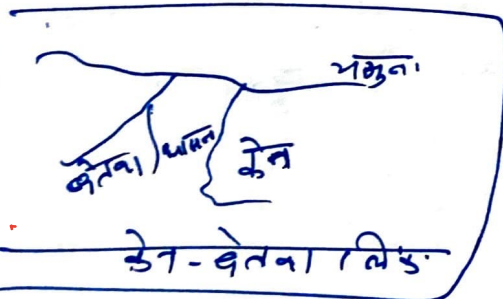 यमुना
बेतवा धामन केन
केन-बेतवा लिंक